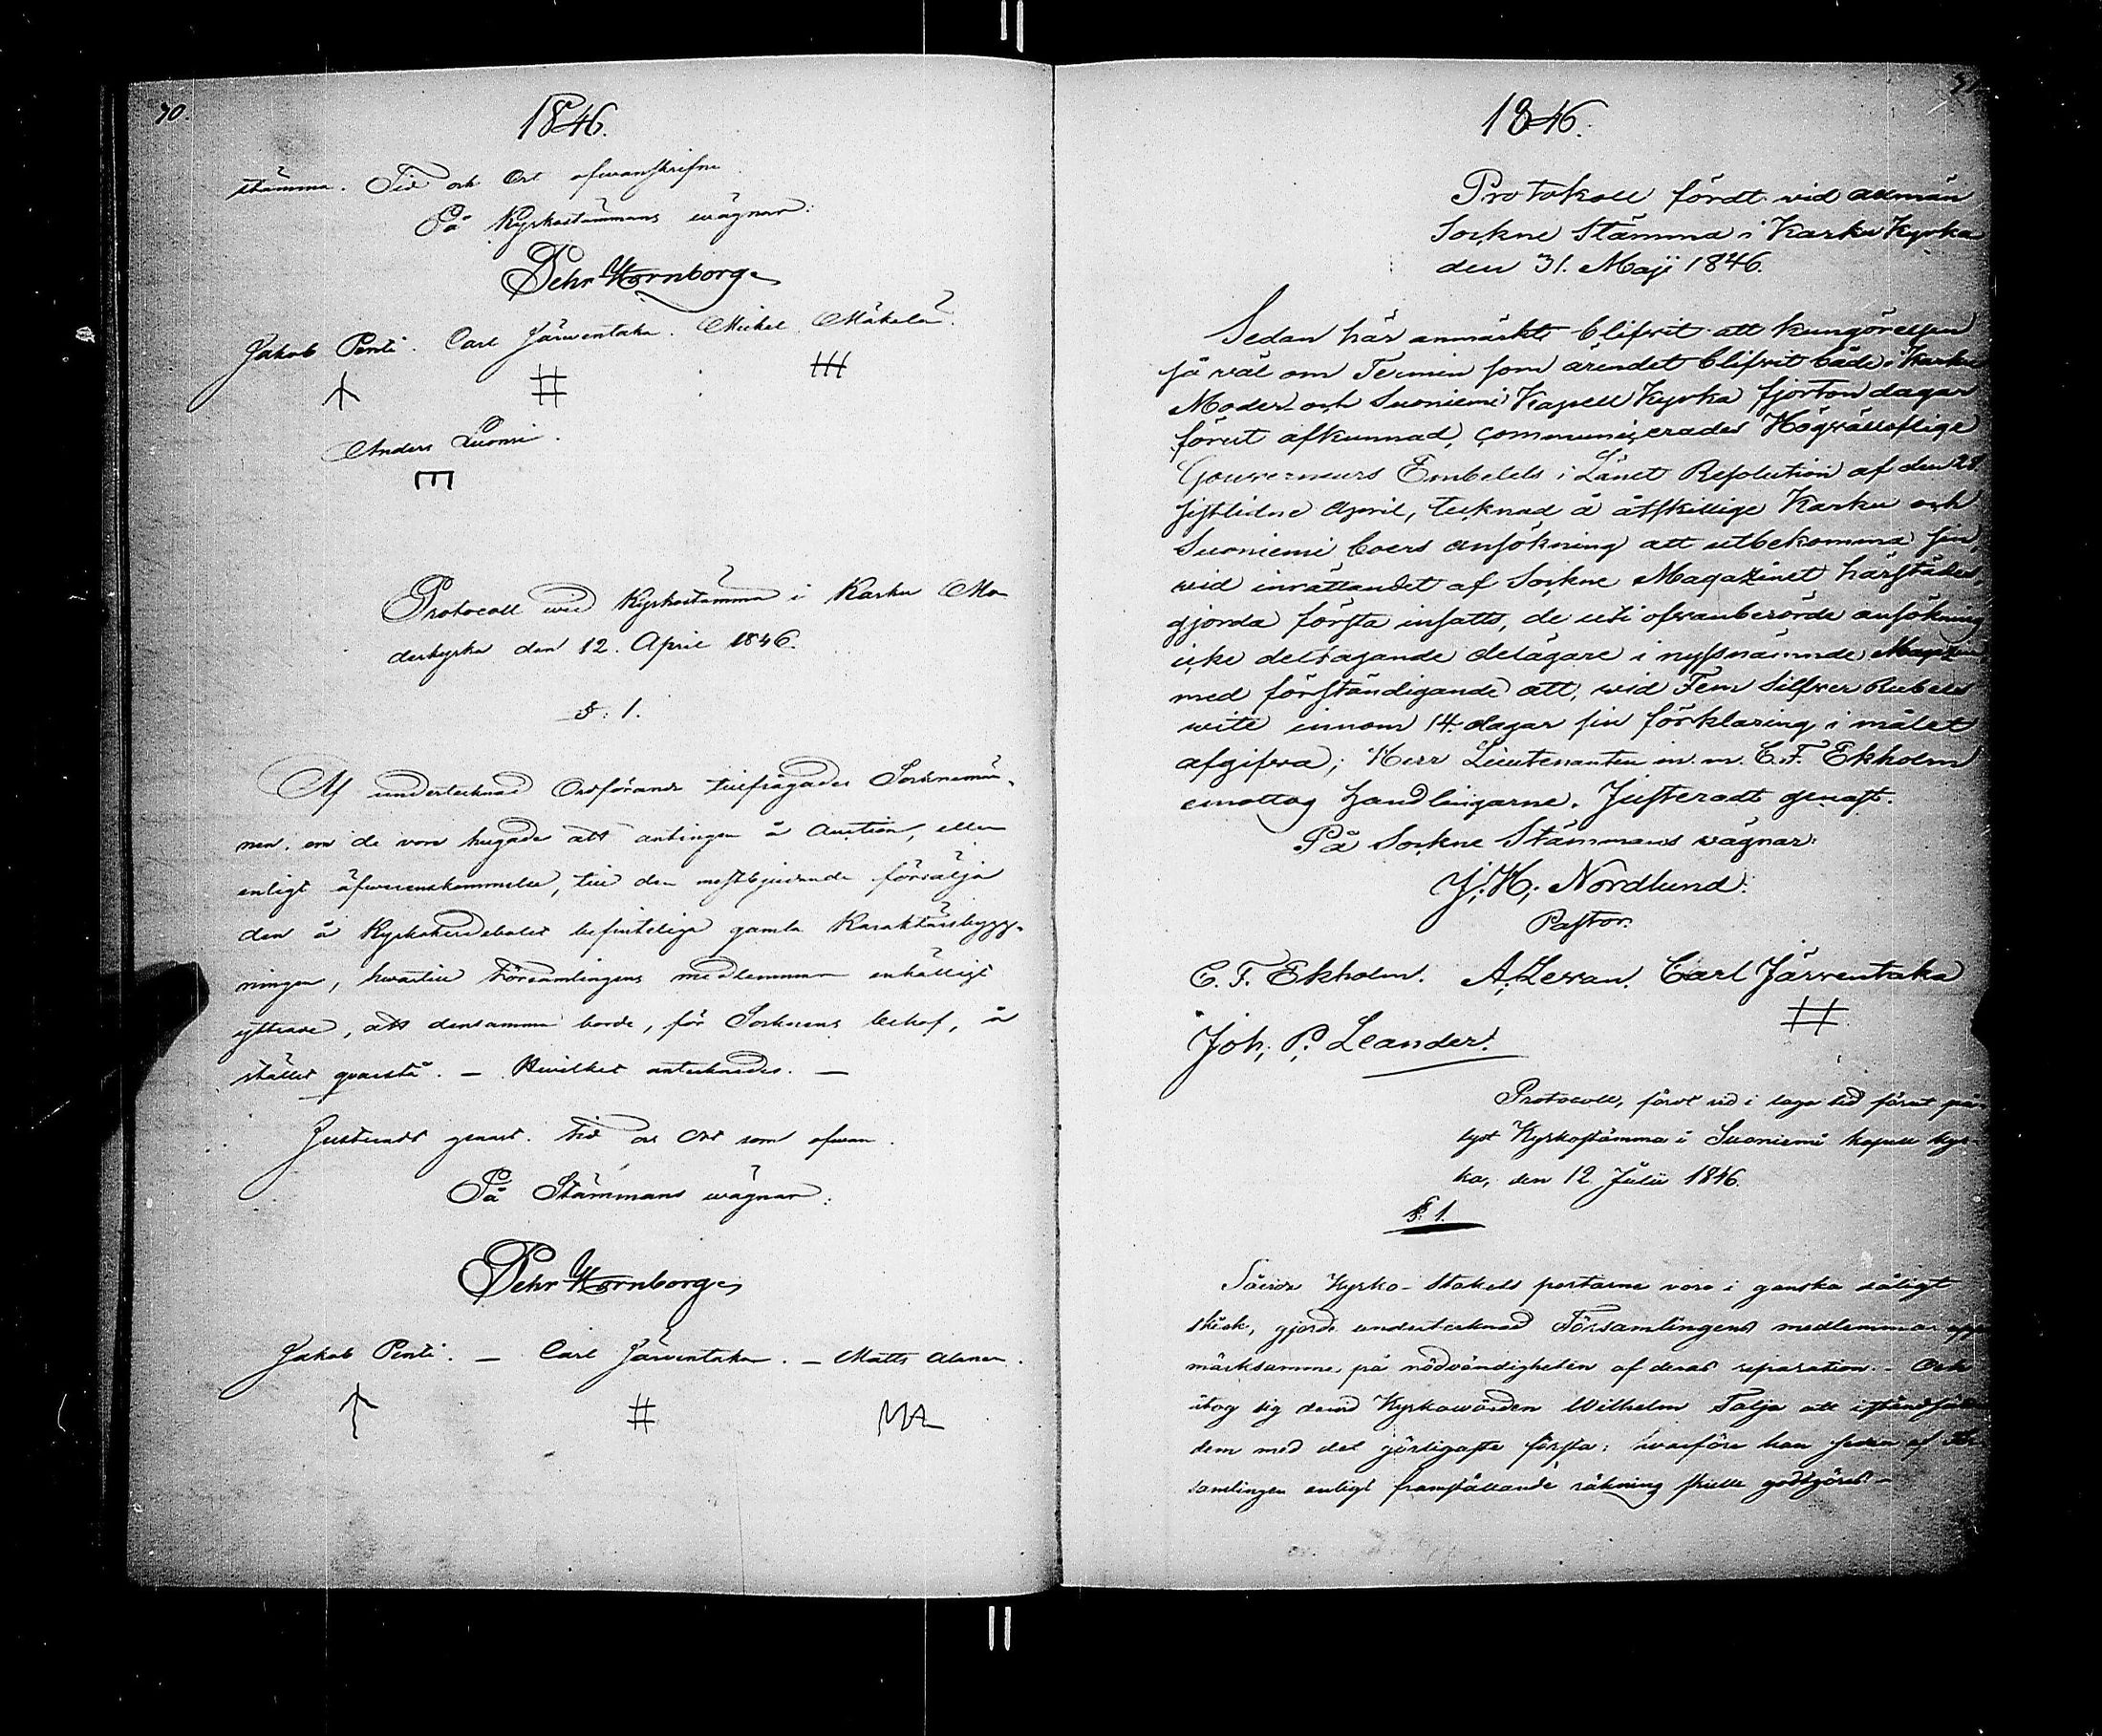 70.
1846.
stämma. Tid och Ort ofwanskrifne.
På Kyrkostämmans wägnar:
Pehr Hornborg
Jakob Penti. Carl Järwentaka. Michel Mäkelä.
Anders Luomi.
Protocoll wid Kyrkostämma i Karku Mo-
derkyrka den 12. April 1846.
§: 1.
Af undertecknad Ordförande tillfrågades Socknemän-
nen, om de voro hugade att antingen å Auction, eller
enligt öfwerenskommelse, till den mestbjudande försälja
den å Kyrkoherdebolet befinteliga gamla Karaktärsbygg-
ningen, hwartill Församlingens medlemmar enhälligt
yttrade, att densamma borde, för Socknens behof, å
stället qvarstå. — Hwilket antecknades. —
Justeradt genast. Tid och Ort som ofwan.
På Stämmans wägnar:
Pehr Hornborg
Jakob Penti. — Carl Järwentaka. — Matts Alanen.
MA
1846.
Protokoll fördt vid allmän
Sockne Stämma i Karku Kyrka
den 31. Maji 1846.
Sedan här anmärkt blifvit att kungörelsen
så väl om Termin som ärendet blifvit både i Karku
Moder och Suoniemi Kapell Kyrka fjorton dagar
förut afkunnad, communicerades Högvälloflige
Gouverneurs Embetets i Länet Resolution af den 28.
sistlidne April, tecknad å åtskillige Karku och
Suoniemi boers ansökning att utbekomma sin,
wid inrättandet af Sockne Magazinet härstädes,
gjorda första insatts, de uti ofvanberörde ansökning
icke deltagande delägare i nyssnämnde Magazin
med förständigande att, wid Fem Silfver Rubels
wite innom 14. dagar sin förklaring i målet
afgifva; Herr Lieutenanten m. m. C. F. Ekholm
emottog handlingarne. Justeradt genast.
På Sockne Stämmans wägnar:
J. H. Nordlund.
Pastor.
C. F. Ekholm. A. Levan. Carl Järventaka
Joh. P. Leander.
Protocoll, fördt vid i laga tid förut på-
lyst Kyrkostämma i Suoniemi kapell kyr-
ka, den 12 Julii 1846.
§: 1.
Såsom Kyrko-Stakets portarne voro i ganska dåligt
skick, gjorde undertecknad Församlingens medlemmar upp-
märksamme på nödvändigheten af deras reparation. — Och
åtog sig dervid Kyrkowärden Wilhelm Talja att iståndsätta
dem med det görligaste första: hvarföre han sedan af För-
samlingen enligt framställande räkning skulle godtgöras. —